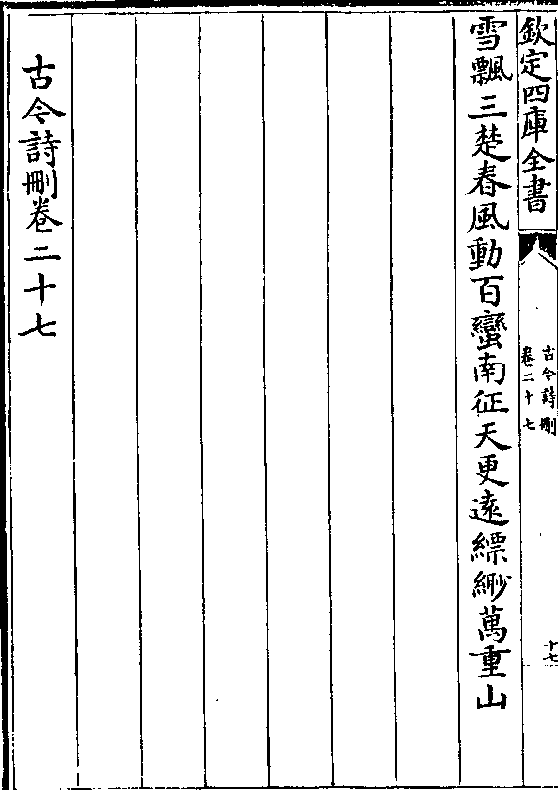 欽定四庫全書
古今詩刪
卷二十七
十七
雪飄三楚春風動百蠻南征天更遠縹緲萬重山
古今詩刪卷二十七